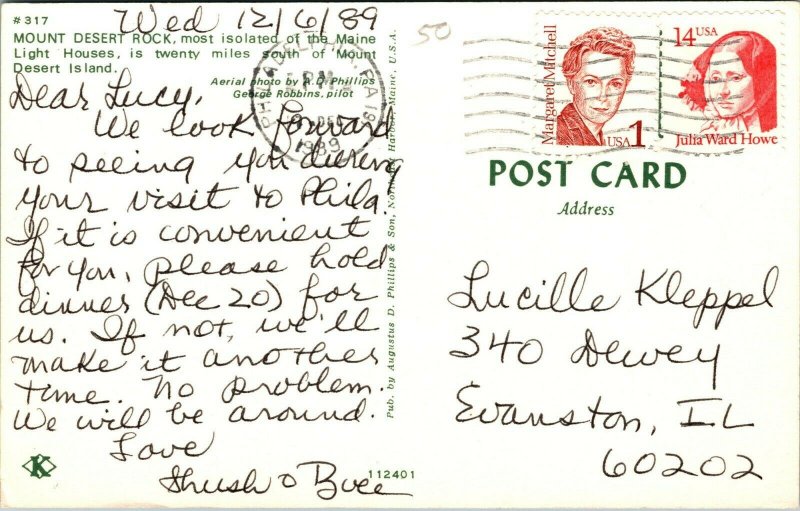 Wed 12/6/89
#317
MOUNT DESERT ROCK, most isolated of the Maine
Light Houses, is twenty miles south of Mount
Desert Island.
Aerial photo by A. D. Phillips
George Robbins, pilot
Dear Lucy,
We look forward
to seeing you during
your visit to Phila.
If it is convenient
for you, please hold
dinner (Dec 20) for
us. If not, we'll
make it another
time. No problem.
We will be around.
Love
112401
K
Pub. by Augustus D. Phillips & Son, Northeast Harbor, Maine, U.S.A.
PHILADELPHIA, PA
PM
DEC
1989
50
Margaret Mitchell
USA 1
14 USA
Julia Ward Howe
POST CARD
Address
Lucille Kleppel
340 Dewey
Evanston, IL
60202